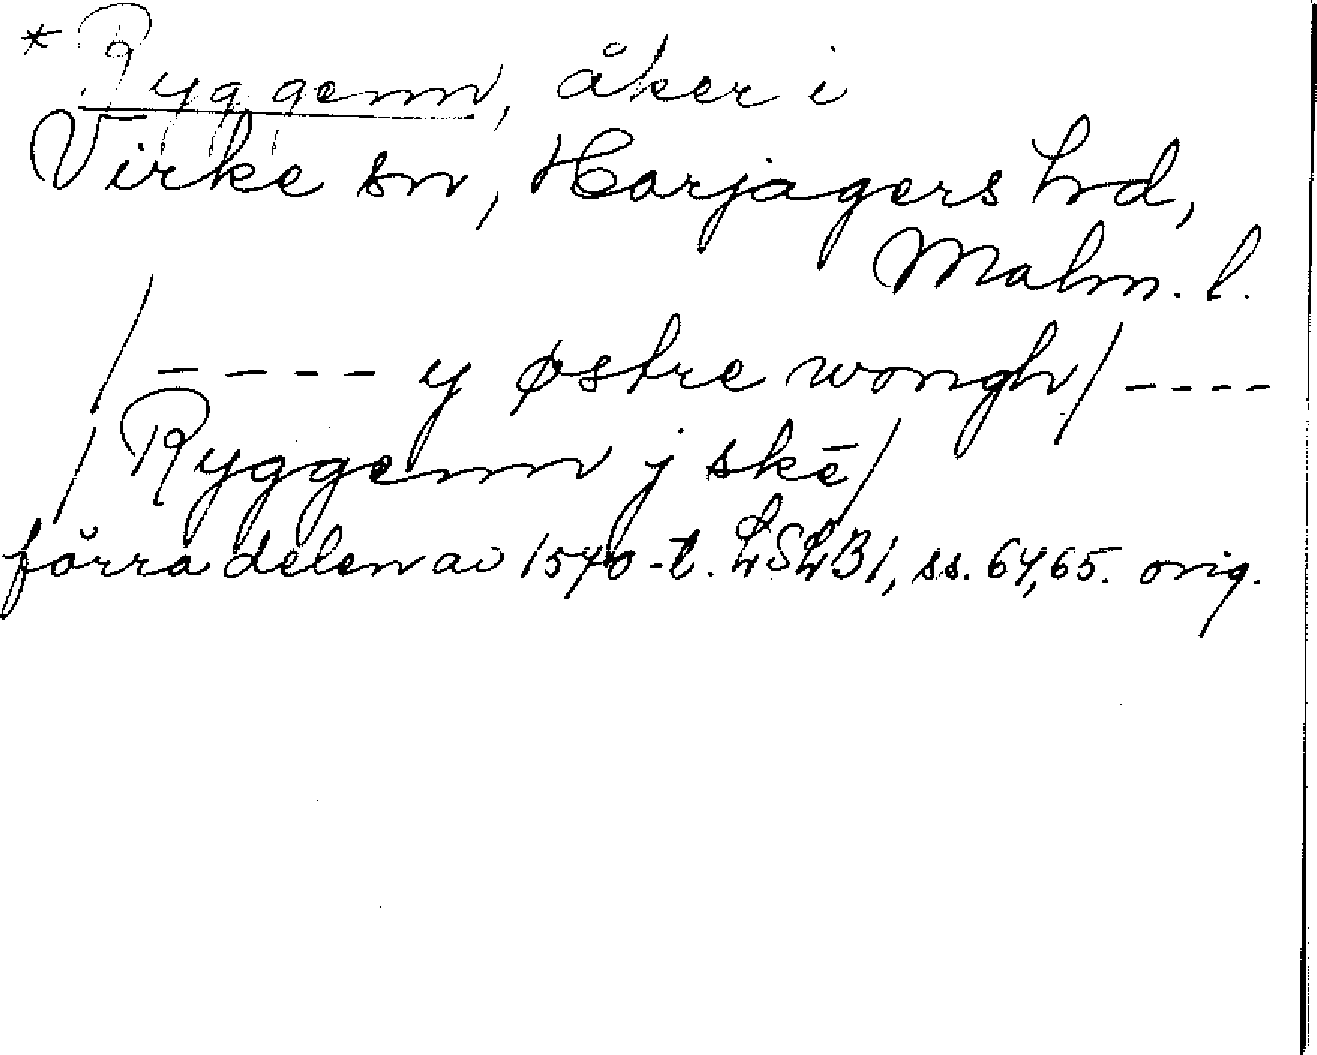 * Ryggenn, åker i
Virke sn, Harjagers hd,
Malm. l.
/ - - - - y østre wongh / - - - -
/ Ryggenn j skē /
förra delen av 1540-t. LSLB1, ss. 64,65. orig.